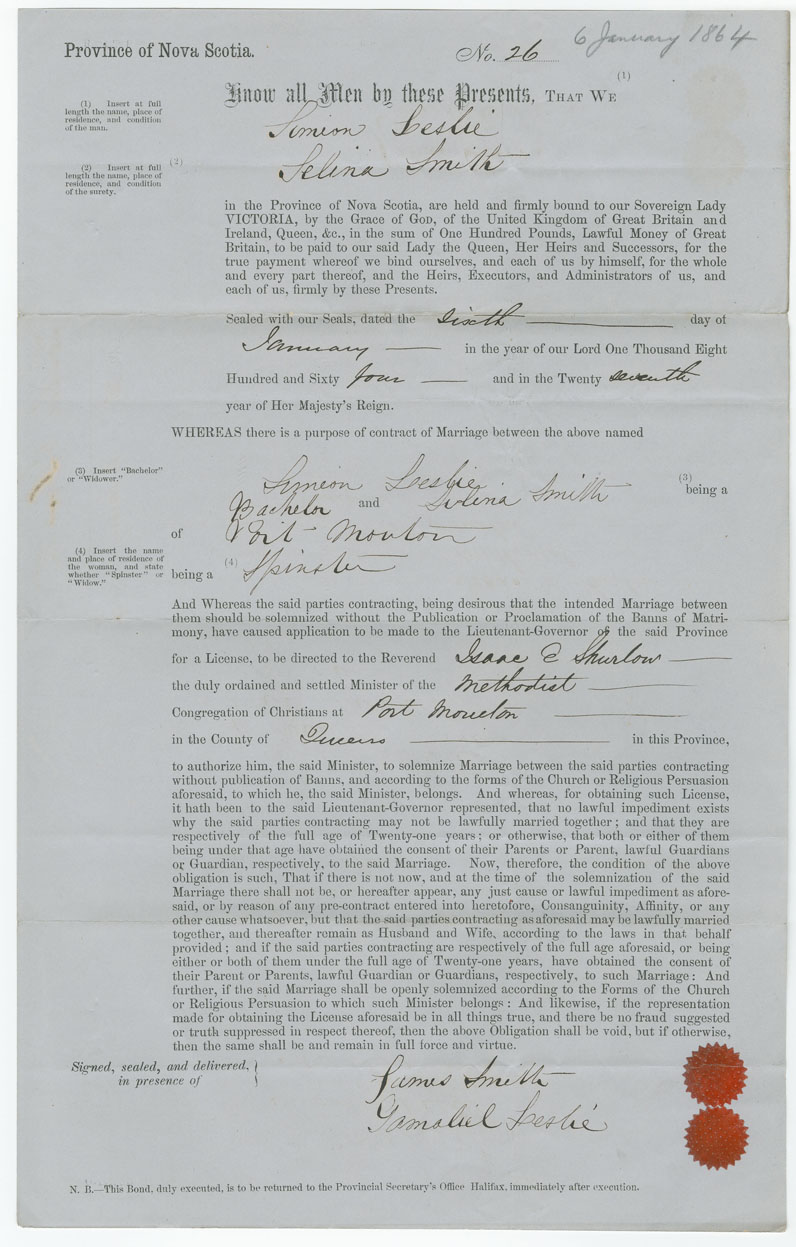 6 January 1864
Province of Nova Scotia.
No. 26
Know all Men by these Presents, THAT WE (1)
(1) Insert at full
length the name, place of
residence, and condition
of the man.
Simeon Leslie
(2) Insert at full
length the name, place of
residence, and condition
of the surety.
(2)
Selina Smith
in the Province of Nova Scotia, are held and firmly bound to our Sovereign Lady
VICTORIA, by the Grace of GOD, of the United Kingdom of Great Britain and
Ireland, Queen, &c., in the sum of One Hundred Pounds, Lawful Money of Great
Britain, to be paid to our said Lady the Queen, Her Heirs and Successors, for the
true payment whereof we bind ourselves, and each of us by himself, for the whole
and every part thereof, and the Heirs, Executors, and Administrators of us, and
each of us, firmly by these Presents.
Sealed with our Seals, dated the Sixth day of
January in the year of our Lord One Thousand Eight
Hundred and Sixty four and in the Twenty seventh
year of Her Majesty's Reign.
WHEREAS there is a purpose of contract of Marriage between the above named
(3) Insert "Bachelor"
or "Widower."
Simeon Leslie (3) being a
Bachelor and Selina Smith
of Port Mouton
(4) Insert the name
and place of residence of
the woman, and state
whether "Spinster" or
"Widow."
being a (4) Spinster
And Whereas the said parties contracting, being desirous that the intended Marriage between
them should be solemnized without the Publication or Proclamation of the Banns of Matri-
mony, have caused application to be made to the Lieutenant-Governor of the said Province
for a License, to be directed to the Reverend Isaac E Thurlow
the duly ordained and settled Minister of the Methodist
Congregation of Christians at Port Moueton
in the County of Queens in this Province,
to authorize him, the said Minister, to solemnize Marriage between the said parties contracting
without publication of Banns, and according to the forms of the Church or Religious Persuasion
aforesaid, to which he, the said Minister, belongs. And whereas, for obtaining such License,
it hath been to the said Lieutenant-Governor represented, that no lawful impediment exists
why the said parties contracting may not be lawfully married together; and that they are
respectively of the full age of Twenty-one years; or otherwise, that both or either of them
being under that age have obtained the consent of their Parents or Parent, lawful Guardians
or Guardian, respectively, to the said Marriage. Now, therefore, the condition of the above
obligation is such, That if there is not now, and at the time of the solemnization of the said
Marriage there shall not be, or hereafter appear, any just cause or lawful impediment as afore-
said, or by reason of any pre-contract entered into heretofore, Consanguinity, Affinity, or any
other cause whatsoever, but that the said parties contracting as aforesaid may be lawfully married
together, and thereafter remain as Husband and Wife, according to the laws in that behalf
provided; and if the said parties contracting are respectively of the full age aforesaid, or being
either or both of them under the full age of Twenty-one years, have obtained the consent of
their Parent or Parents, lawful Guardian or Guardians, respectively, to such Marriage: And
further, if the said Marriage shall be openly solemnized according to the Forms of the Church
or Religious Persuasion to which such Minister belongs: And likewise, if the representation
made for obtaining the License aforesaid be in all things true, and there be no fraud suggested
or truth suppressed in respect thereof, then the above Obligation shall be void, but if otherwise,
then the same shall be and remain in full force and virtue.
Signed, sealed, and delivered,
in presence of
James Smith
Gamaliel Leslie
N. B.—This Bond, duly executed, is to be returned to the Provincial Secretary's Office Halifax, immediately after execution.